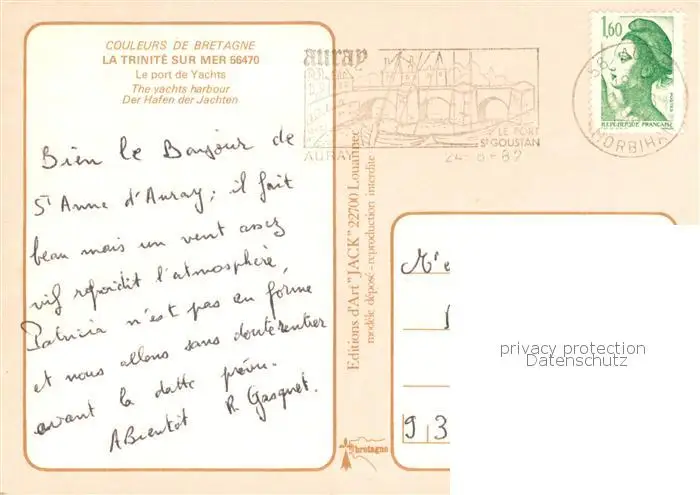 COULEURS DE BRETAGNE
LA TRINITÉ SUR MER 56470
Le port de Yachts
The yachts harbour
Der Hafen der Jachten
Bien le Bonjour de
St Anne d'Auray; il fait
beau mais un vent assez
vif refroidit l'atmosphère,
Patricia n'est pas en forme
et nous allons sans doute rentrer
avant la datte prévue.
A Bientôt R. Gasquet.
auray
AURAY
LE PORT
St GOUSTAN
24-8-82
1,60
REPUBLIQUE FRANÇAISE
MORBIHAN
Editions d'Art "JACK" 22700 Louannec
modèle déposé - reproduction interdite
bretagne
93
privacy protection
Datenschutz